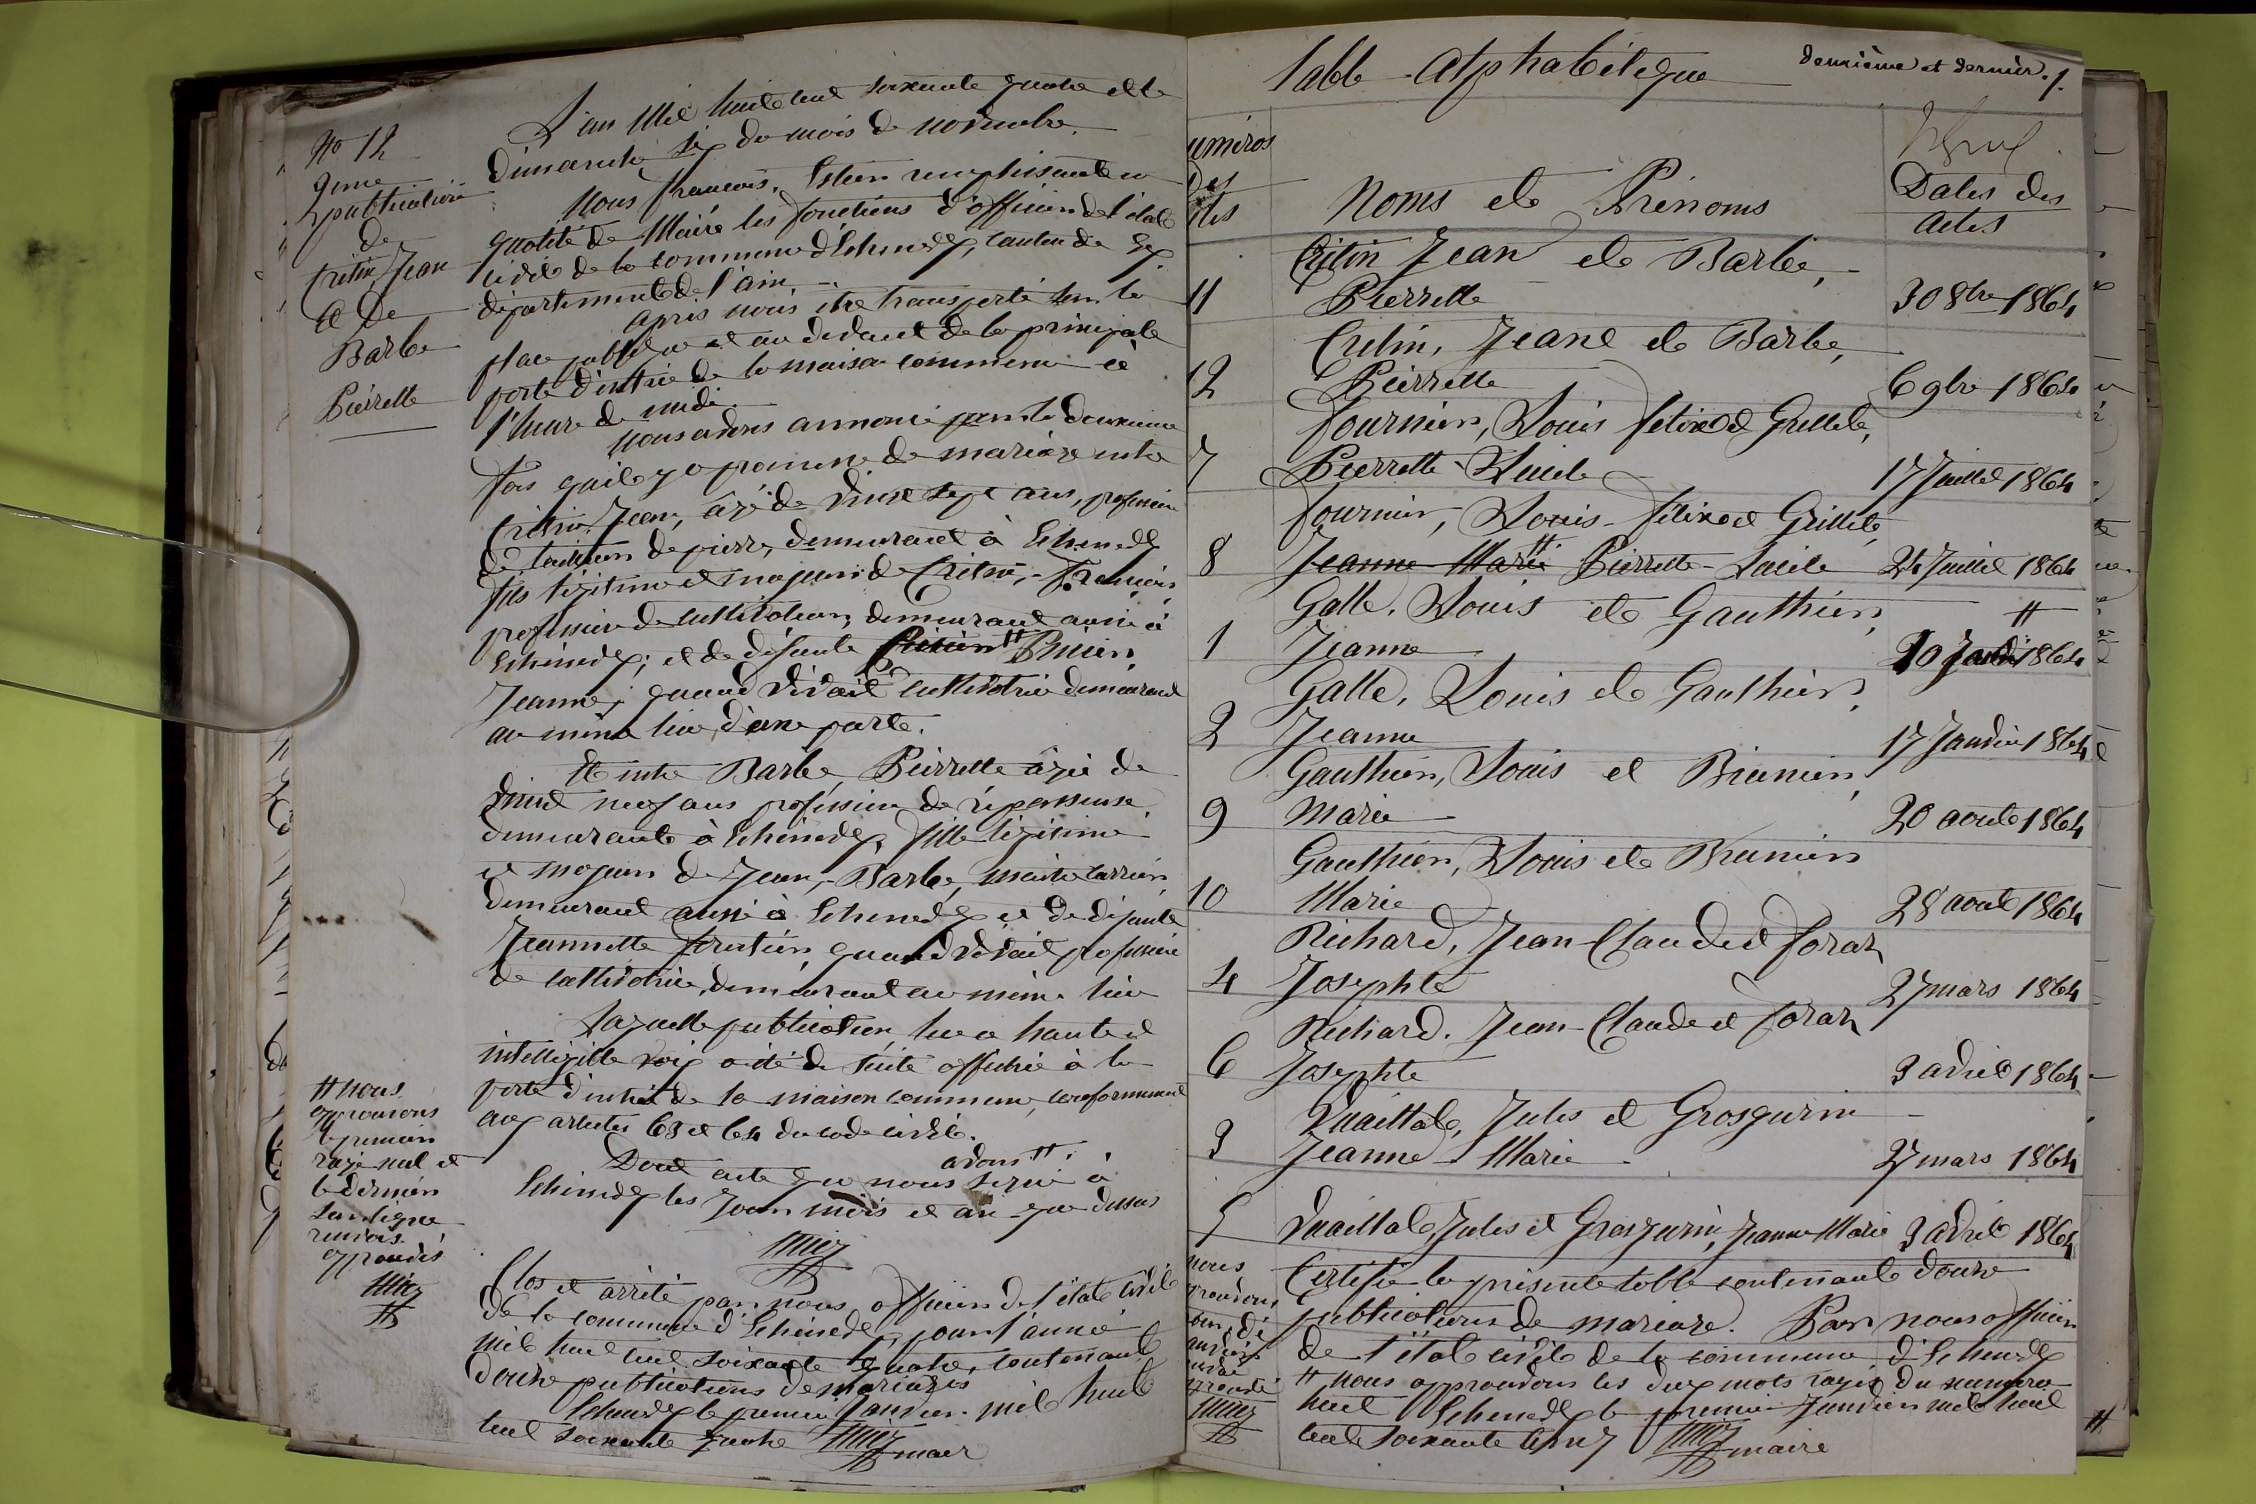 L'an Mil huit cent soixante quatre et le
dimanche six du mois de novembre.
N° 12
2eme
publication
de
Critin Jean
et de
Barbe
Pierrette
Nous françois, remplissant en
qualité de Maire les fonctions d'officier de l'état
civil de la commune d'Echenevex, canton de Gex
département de l'ain.
après nous être transporté sur la
place publique et au devant de la principale
porte d'entrée de la maison commune à
l'heure de midi.
nous avons annoncé pour la deuxième
fois qu'il y a promesse de mariage entre
Critin Jean, âgé de vingt sept ans, profession
de tailleur de pierre, demeurant à Echenevex
fils légitime et majeur de Critin, François,
profession de cultivateur, demeurant aussi à
Echenevex; et de défunte Critin # Prunier,
Jeanne, quand vivait cultivatrice demeurant
au même lieu, d'une part.
Et entre Barbe, Pierrette âgée de
vingt neuf ans profession de repasseuse
demeurante à Echenevex, fille légitime
et majeur de Jean, Barbe, maître carrier
demeurant aussi à Echenevex et de défunte
Jeannette quand vivait profession
de cultivatrice, demeurant au même lieu
Laquelle publication, lue a haute et
intelligible voix a été de suite affichée à la
porte d'entrée de la maison commune, conformément
aux articles 63 et 64 du code civil.
Dont acte que nous avons #. signé à
Echenevex les Jour mois et an que dessus
# nous
approuvons
le premier
rayé nul et
le dernier
sur ligne
renvois
approuvés
Clos et arrêté par nous officier de l'état civil
de la commune d'Echenevex, pour l'année
mil huit cent soixante quatre, contenant
douze publications de mariages
Echenevex le premier Janvier mil huit
cent soixante quatre maire
Table Alphabétique
deuxième et dernier. 1.
uméros
des
ctes
Noms et Prénoms
Dates des
actes
Critin Jean et Barbe,
11 Pierrette 30 8bre 1864
Critin, Jean et Barbe,
12 Pierrette 6 9bre 1864
fournier, Louis félix et Grillet,
7 Pierrette Lucile 17 Juillet 1864
fournier, Louis félix et Grillet,
8 Jeanne Marie # Pierrette Lucile 24 Juillet 1864
Galle, Louis et Gauthier,
#
1 Jeanne 10 Janvier 1864
Galle, Louis et Gauthier,
2 Jeanne 17 Janvier 1864
Gauthier, Louis et Prunier,
9 Marie 20 aout 1864
Gauthier, Louis et Prunier
10 Marie 28 aout 1864
Richard, Jean-Claude et foraz
4 Josephte 27 mars 1864
Richard. Jean-Claude et foraz
6 Josephte 3 avril 1864
Vuaillat, Jules et Grosgurin
3 Jeanne-Marie 27 mars 1864
5 Vuaillat, Jules et Grosgurin, Jeanne Marie 3 avril 1864
Certifié la présente table contenant douze
publications de mariage. Par nous officier
de l'état civil de la commune d'Echenevex
# nous approuvons les deux mots rayés du numéro
huit Echenevex le premier Janvier mil huit
cent soixante cinq maire
nous